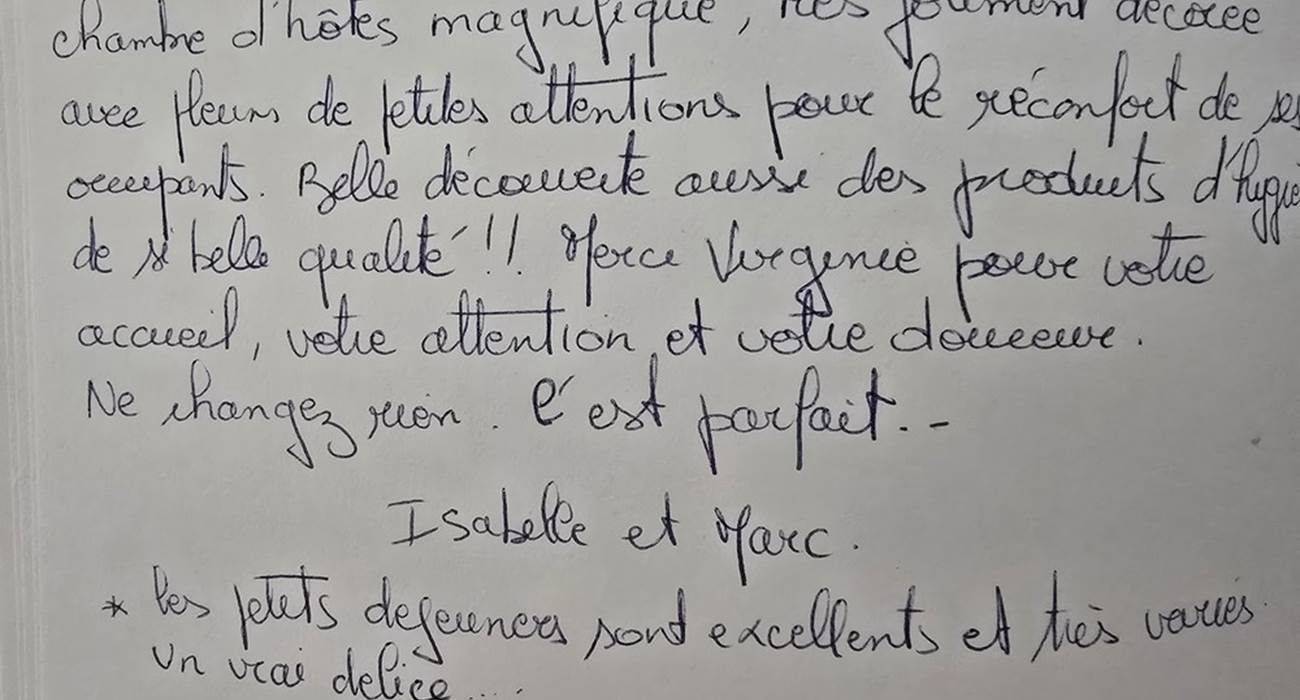 chambre d'hôtes magnifique, très joliment décorée
avec pleins de petites attentions pour le réconfort de ses
occupants. Belle découverte aussi des produits
de si belle qualité !! Merci Virginie pour votre
accueil, votre attention et votre douceur.
Ne changez rien. C'est parfait..-
Isabelle et Marc.
* les petits dejeuners sont excellents et très variés.
Un vrai delice....